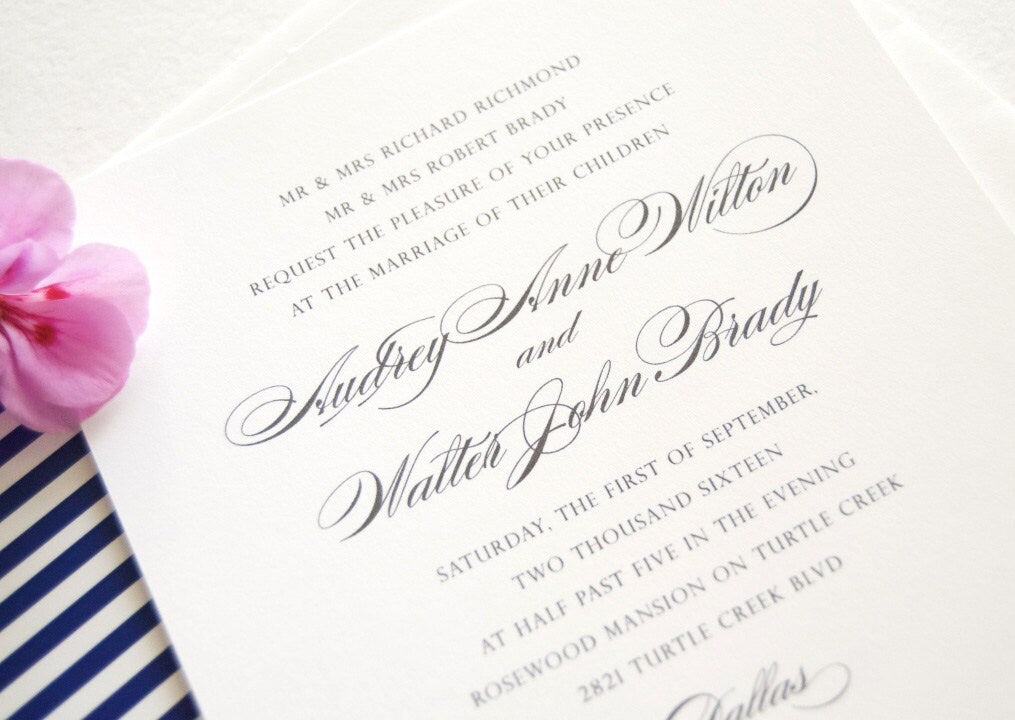 MR & MRS RICHARD RICHMOND
MR & MRS ROBERT BRADY
REQUEST THE PLEASURE OF YOUR PRESENCE
AT THE MARRIAGE OF THEIR CHILDREN
Audrey Anne Wilton
and
Walter John Brady
SATURDAY, THE FIRST OF SEPTEMBER,
TWO THOUSAND SIXTEEN
AT HALF PAST FIVE IN THE EVENING
ROSEWOOD MANSION ON TURTLE CREEK
2821 TURTLE CREEK BLVD
Dallas